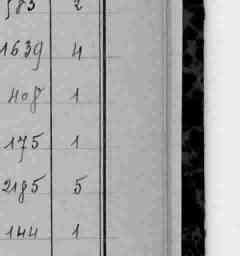 583 2
1639 4
408 1
175 1
2185 5
144 1